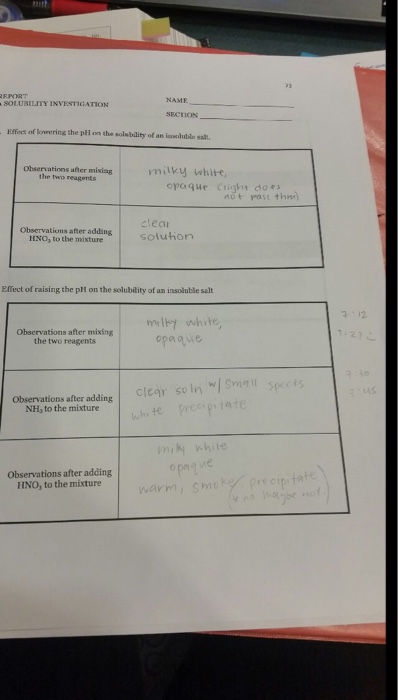 REPORT
SOLUBILITY INVESTIGATION
NAME
SECTION
Effect of lowering the pH on the solubility of an insoluble salt
Observations after mixing
the two reagents
milky white,
opaque (light does
not pass thru)
Observations after adding
HNO3 to the mixture
clear
solution
Effect of raising the pH on the solubility of an insoluble salt
Observations after mixing
the two reagents
milky white,
opaque
7:12
Observations after adding
NH3 to the mixture
clear soln w/ small specks
white precipitate
Observations after adding
HNO3 to the mixture
milky white
opaque
warm, smoky precipitate
maybe not.)